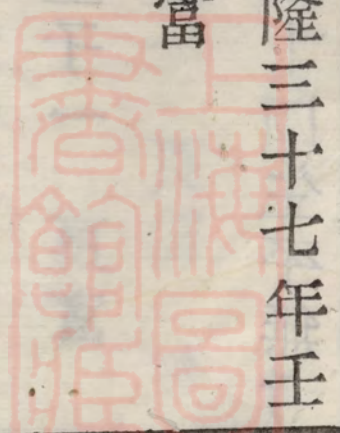 隆三十七年壬
富
上海圖
書館藏